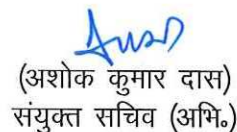 (अशोक कुमार दास)
संयुक्त सचिव (अभि॰)